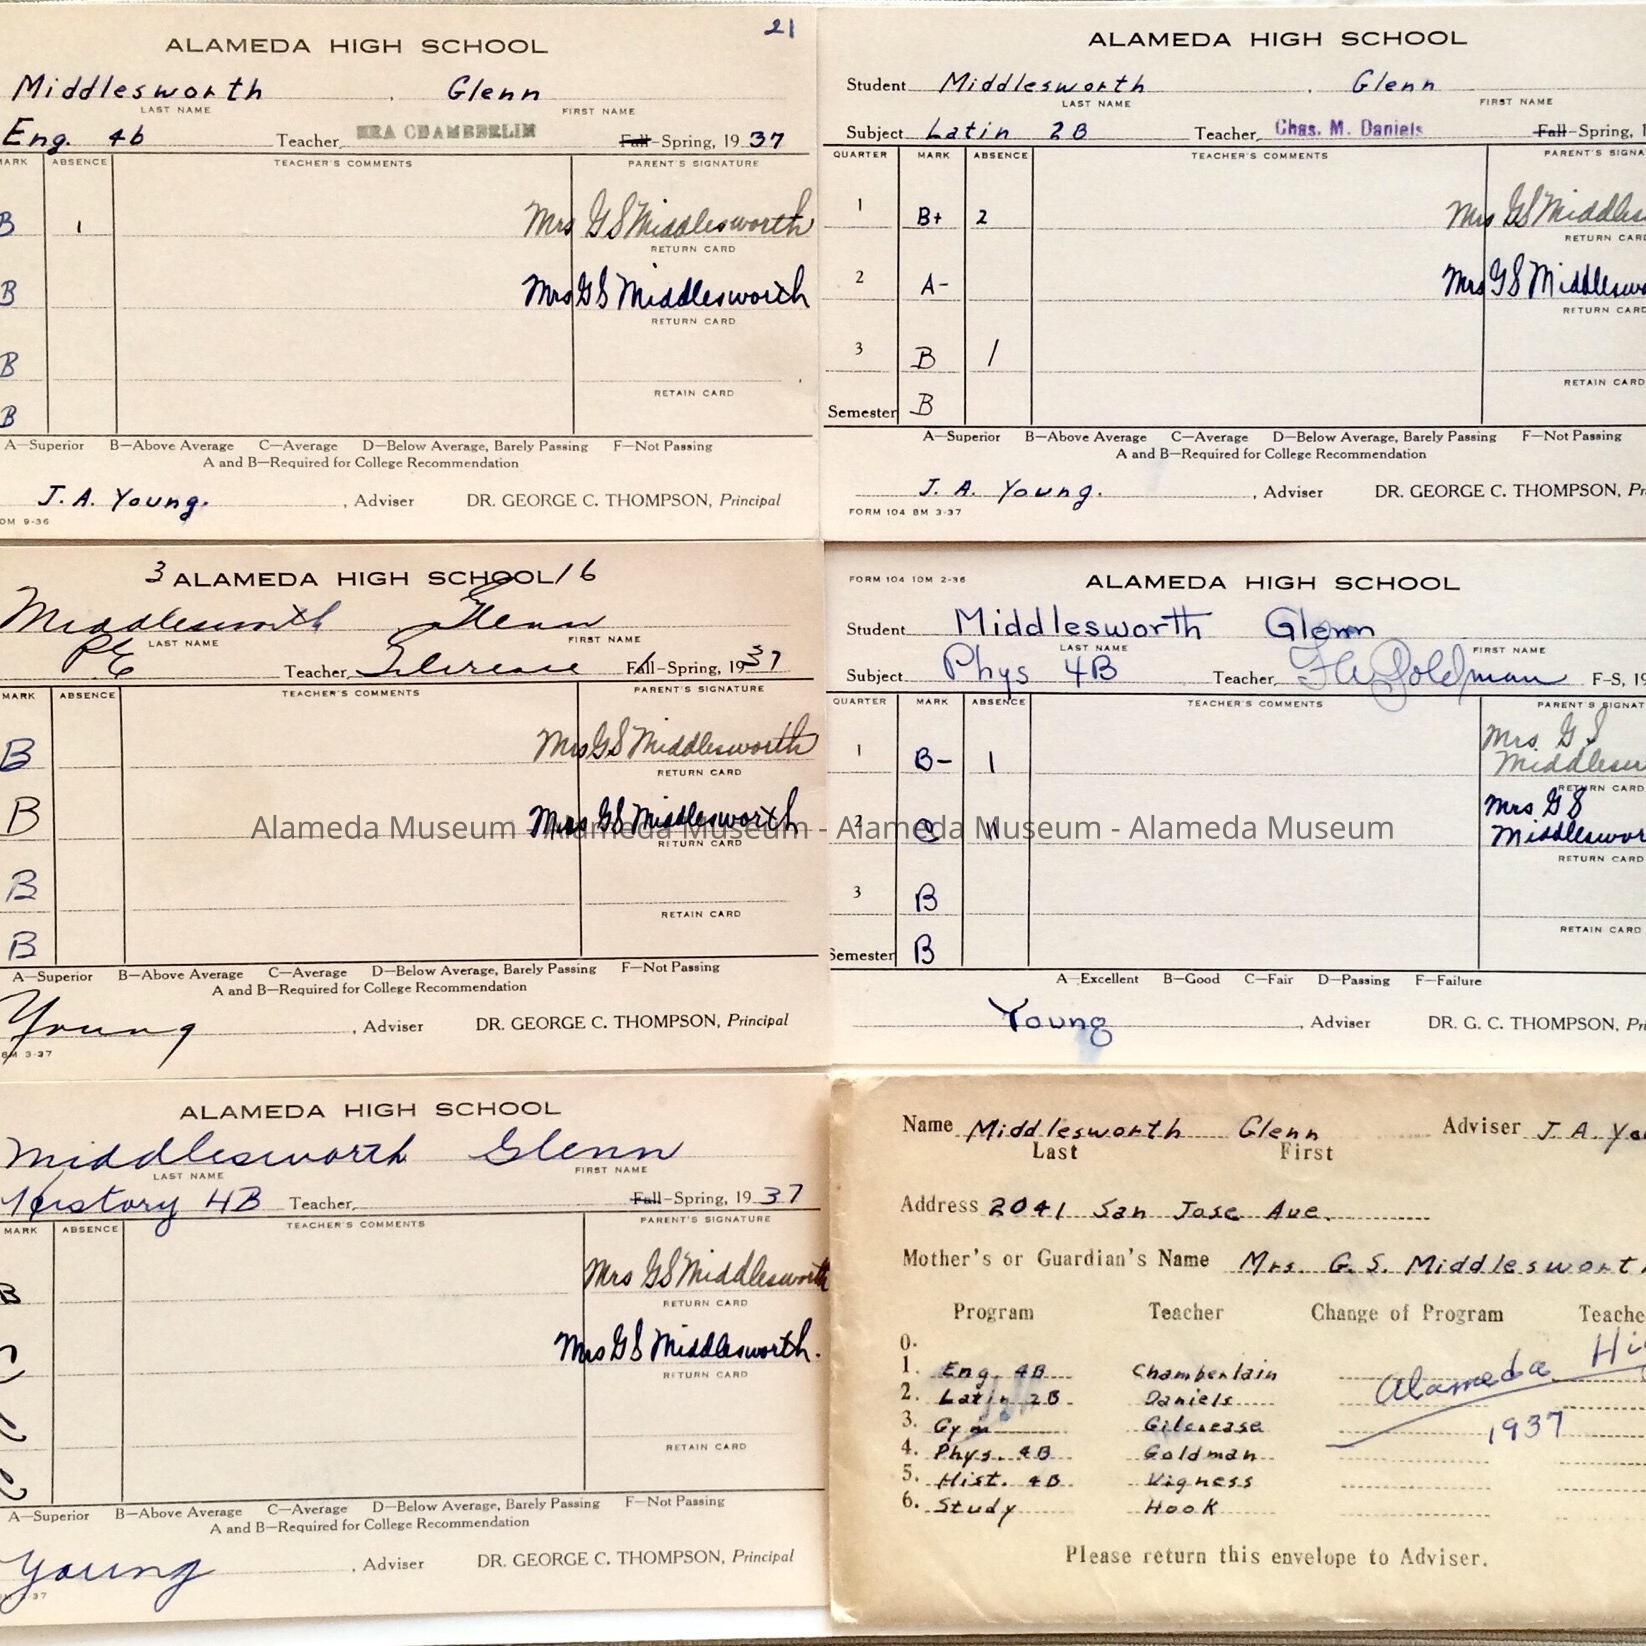 21
ALAMEDA HIGH SCHOOL
Middlesworth Glenn
LAST NAME FIRST NAME
Eng. 4b Teacher CHAMBERLIN Fall-Spring, 1937
MARK ABSENCE TEACHER'S COMMENTS PARENT'S SIGNATURE
B 1 Mrs GS Middlesworth
RETURN CARD
B Mrs GS Middlesworth
RETURN CARD
B
RETAIN CARD
B
A—Superior B—Above Average C—Average D—Below Average, Barely Passing F—Not Passing
A and B—Required for College Recommendation
J. A. Young. , Adviser DR. GEORGE C. THOMPSON, Principal
9-36
ALAMEDA HIGH SCHOOL
Student Middlesworth Glenn
LAST NAME FIRST NAME
Subject Latin 2B Teacher Chas. M. Daniels Fall-Spring, 1
QUARTER MARK ABSENCE TEACHER'S COMMENTS PARENT'S SIGNA
1 B+ 2 Mrs GS Middles
RETURN CARD
2 A- Mrs GS Middleswo
RETURN CARD
3 B 1
RETAIN CARD
Semester B
A—Superior B—Above Average C—Average D—Below Average, Barely Passing F—Not Passing
A and B—Required for College Recommendation
J. A. Young. , Adviser DR. GEORGE C. THOMPSON, Pr
FORM 104 8M 3-37
3 ALAMEDA HIGH SCHOOL 16
Middlesworth Glenn
LAST NAME FIRST NAME
PE Teacher Fall-Spring, 1937
MARK ABSENCE TEACHER'S COMMENTS PARENT'S SIGNATURE
B Mrs GS Middlesworth
RETURN CARD
B Mrs GS Middlesworth
RETURN CARD
B
RETAIN CARD
B
A—Superior B—Above Average C—Average D—Below Average, Barely Passing F—Not Passing
A and B—Required for College Recommendation
Young , Adviser DR. GEORGE C. THOMPSON, Principal
8M 3-37
FORM 104 10M 2-36 ALAMEDA HIGH SCHOOL
Student Middlesworth Glenn
LAST NAME FIRST NAME
Subject Phys 4B Teacher Goldman F-S, 19
QUARTER MARK ABSENCE TEACHER'S COMMENTS PARENT'S SIGNAT
1 B- 1 Mrs. G S
Middlesw
RETURN CARD
2 C 11 Mrs GS
Middleswor
RETURN CARD
3 B
RETAIN CARD
Semester B
A—Excellent B—Good C—Fair D—Passing F—Failure
Young , Adviser DR. G. C. THOMPSON, Pr
Alameda Museum - Alameda Museum - Alameda Museum - Alameda Museum
ALAMEDA HIGH SCHOOL
Middlesworth Glenn
LAST NAME FIRST NAME
History 4B Teacher Fall-Spring, 1937
MARK ABSENCE TEACHER'S COMMENTS PARENT'S SIGNATURE
B Mrs GS Middlesworth
RETURN CARD
Mrs GS Middlesworth.
RETURN CARD
RETAIN CARD
A—Superior B—Above Average C—Average D—Below Average, Barely Passing F—Not Passing
A and B—Required for College Recommendation
Young , Adviser DR. GEORGE C. THOMPSON, Principal
37
Name Middlesworth Glenn Adviser J. A. You
Last First
Address 2041 San Jose Ave.
Mother's or Guardian's Name Mrs. G. S. Middlesworth
Program Teacher Change of Program Teache
0.
1. Eng. 4B Chamberlain
2. Latin 2B Daniels
3. Gym Gilcrease
4. Phys. 4B Goldman
5. Hist. 4B Vigness
6. Study Hook
Alameda Hi
1937
Please return this envelope to Adviser.